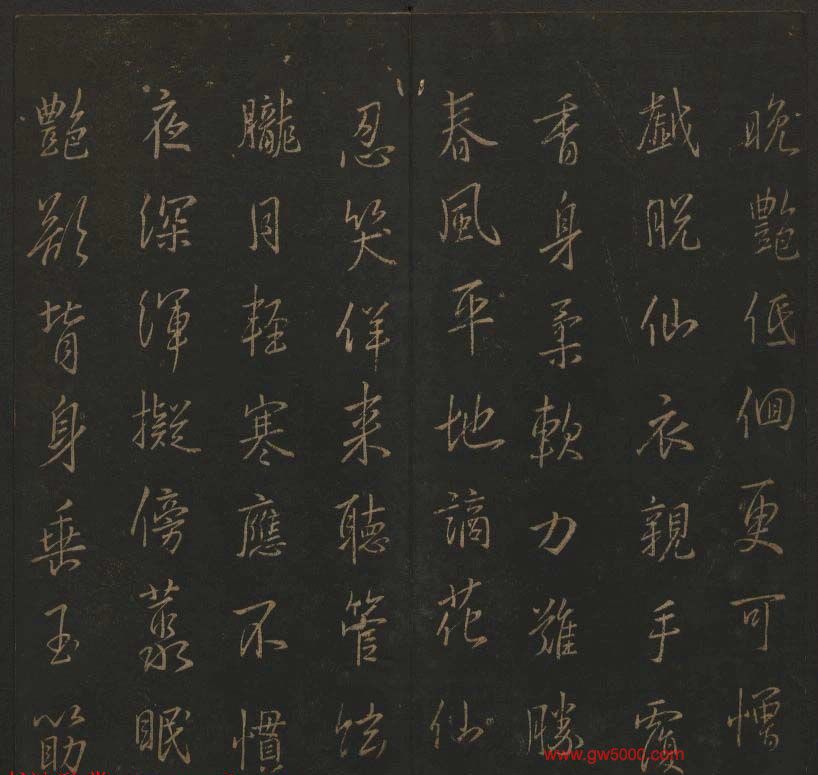 晚艷低佪更可憎
戲脫仙衣親手覆
香身柔軟力難勝
春風平地謫花仙
忍笑佯来聽管絃
朧月輕寒應不慣
夜深渾擬傍叢眠
艷歌背身垂玉筋
www.gw5000.com